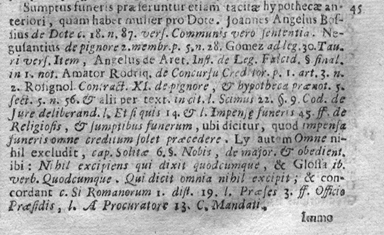 Sumptus funeris præferuntur etiam tacitæ hypothecæ an- 45
teriori, quam habet mulier pro Dote. Joannes Angelus Bos-
sius de Dote c. 18. n. 87. vers. Communis vero sententia. Ne-
gusantius de pignore 2. membr. p. 5. n. 28. Gomez ad leg. 30. Tau-
ri vers. Item, Angelus de Aret. Inst. de Leg. Falcid. § final.
in 1. not. Amator Rodriq. de Concursu Cred tor. p. 1. art. 3. n.
2. Rosignol Contract. XI. de pignore, & hypotheca prænot. 5.
sect. 5. n. 56. & alii per text. in cit. l. Scimus 22. §. 9. Cod. de
Jure deliberand. l. Et si quis 14. & l. Impensæ funeris 45. ff. de
Religiosis, & sumptibus funerum, ubi dicitur, quod impensa
funeris omne creditum solet præcedere. Ly autem Omne ni-
hil excludit, cap. Solitæ 6. §. Nobis, de major. & obedient.
ibi: Nihil excipiens qui dixit quodcumque, & Glossa ib.
verb. Quodcumque. Qui dicit omnia nihil excipit; & con-
cordant c. Si Romanorum 1. dist. 19. l. Præses 3. ff. Officio
Præsidis, l. A Procuratore 13. C. Mandati.
Immo